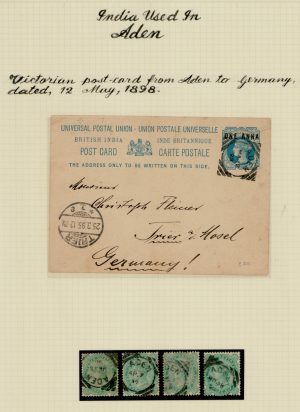 India Used In
Aden
Victorian post-card from Aden to Germany,
dated, 12 May, 1898.
UNIVERSAL POSTAL UNION - UNION POSTALE UNIVERSELLE
BRITISH INDIA INDE BRITANNIQUE
POST CARD CARTE POSTALE
THE ADDRESS ONLY TO BE WRITTEN ON THIS SIDE.
ONE ANNA
Monsieur
Christoph
TRIER
Trier a/Mosel
Germany!
ADEN